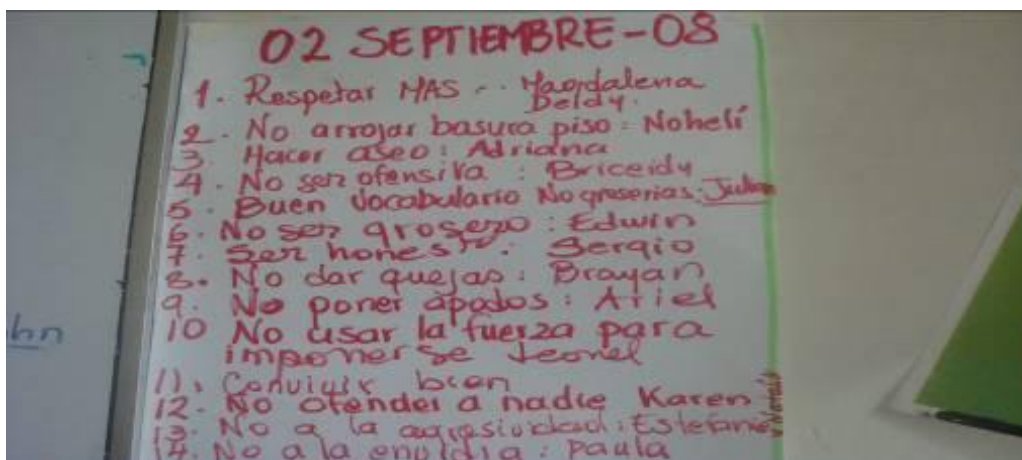 02 SEPTIEMBRE-08
1. Respetar MAS.. Magdalena
Deidy.
2. No arrojar basura piso: Nohelí
3. Hacer aseo: Adriana
4. No ser ofensiva: Briceidy
5. Buen Vocabulario No groserias: Julian
6. No ser grosero: Edwin
7. Ser honesto: Sergio
8. No dar quejas: Brayan
9. No poner apodos: Ariel
10 No usar la fuerza para
imponerse Leonel
11. Convivir bien
12. No ofender a nadie Karen
13. No a la agresividad: Estefania
14. No a la envidia: Paula
hn